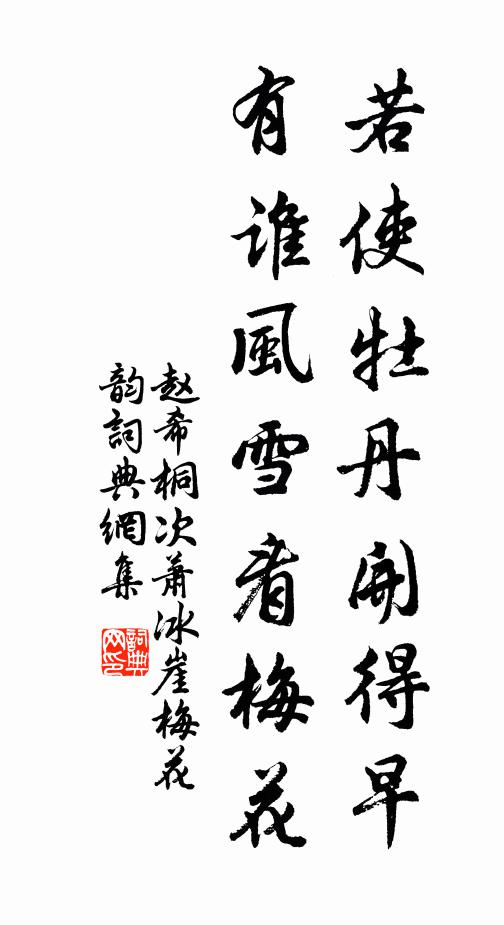 若使牡丹開得早
有誰風雪看梅花
赵希桐次萧冰崖梅花
韵詞典網集
詞典
网印